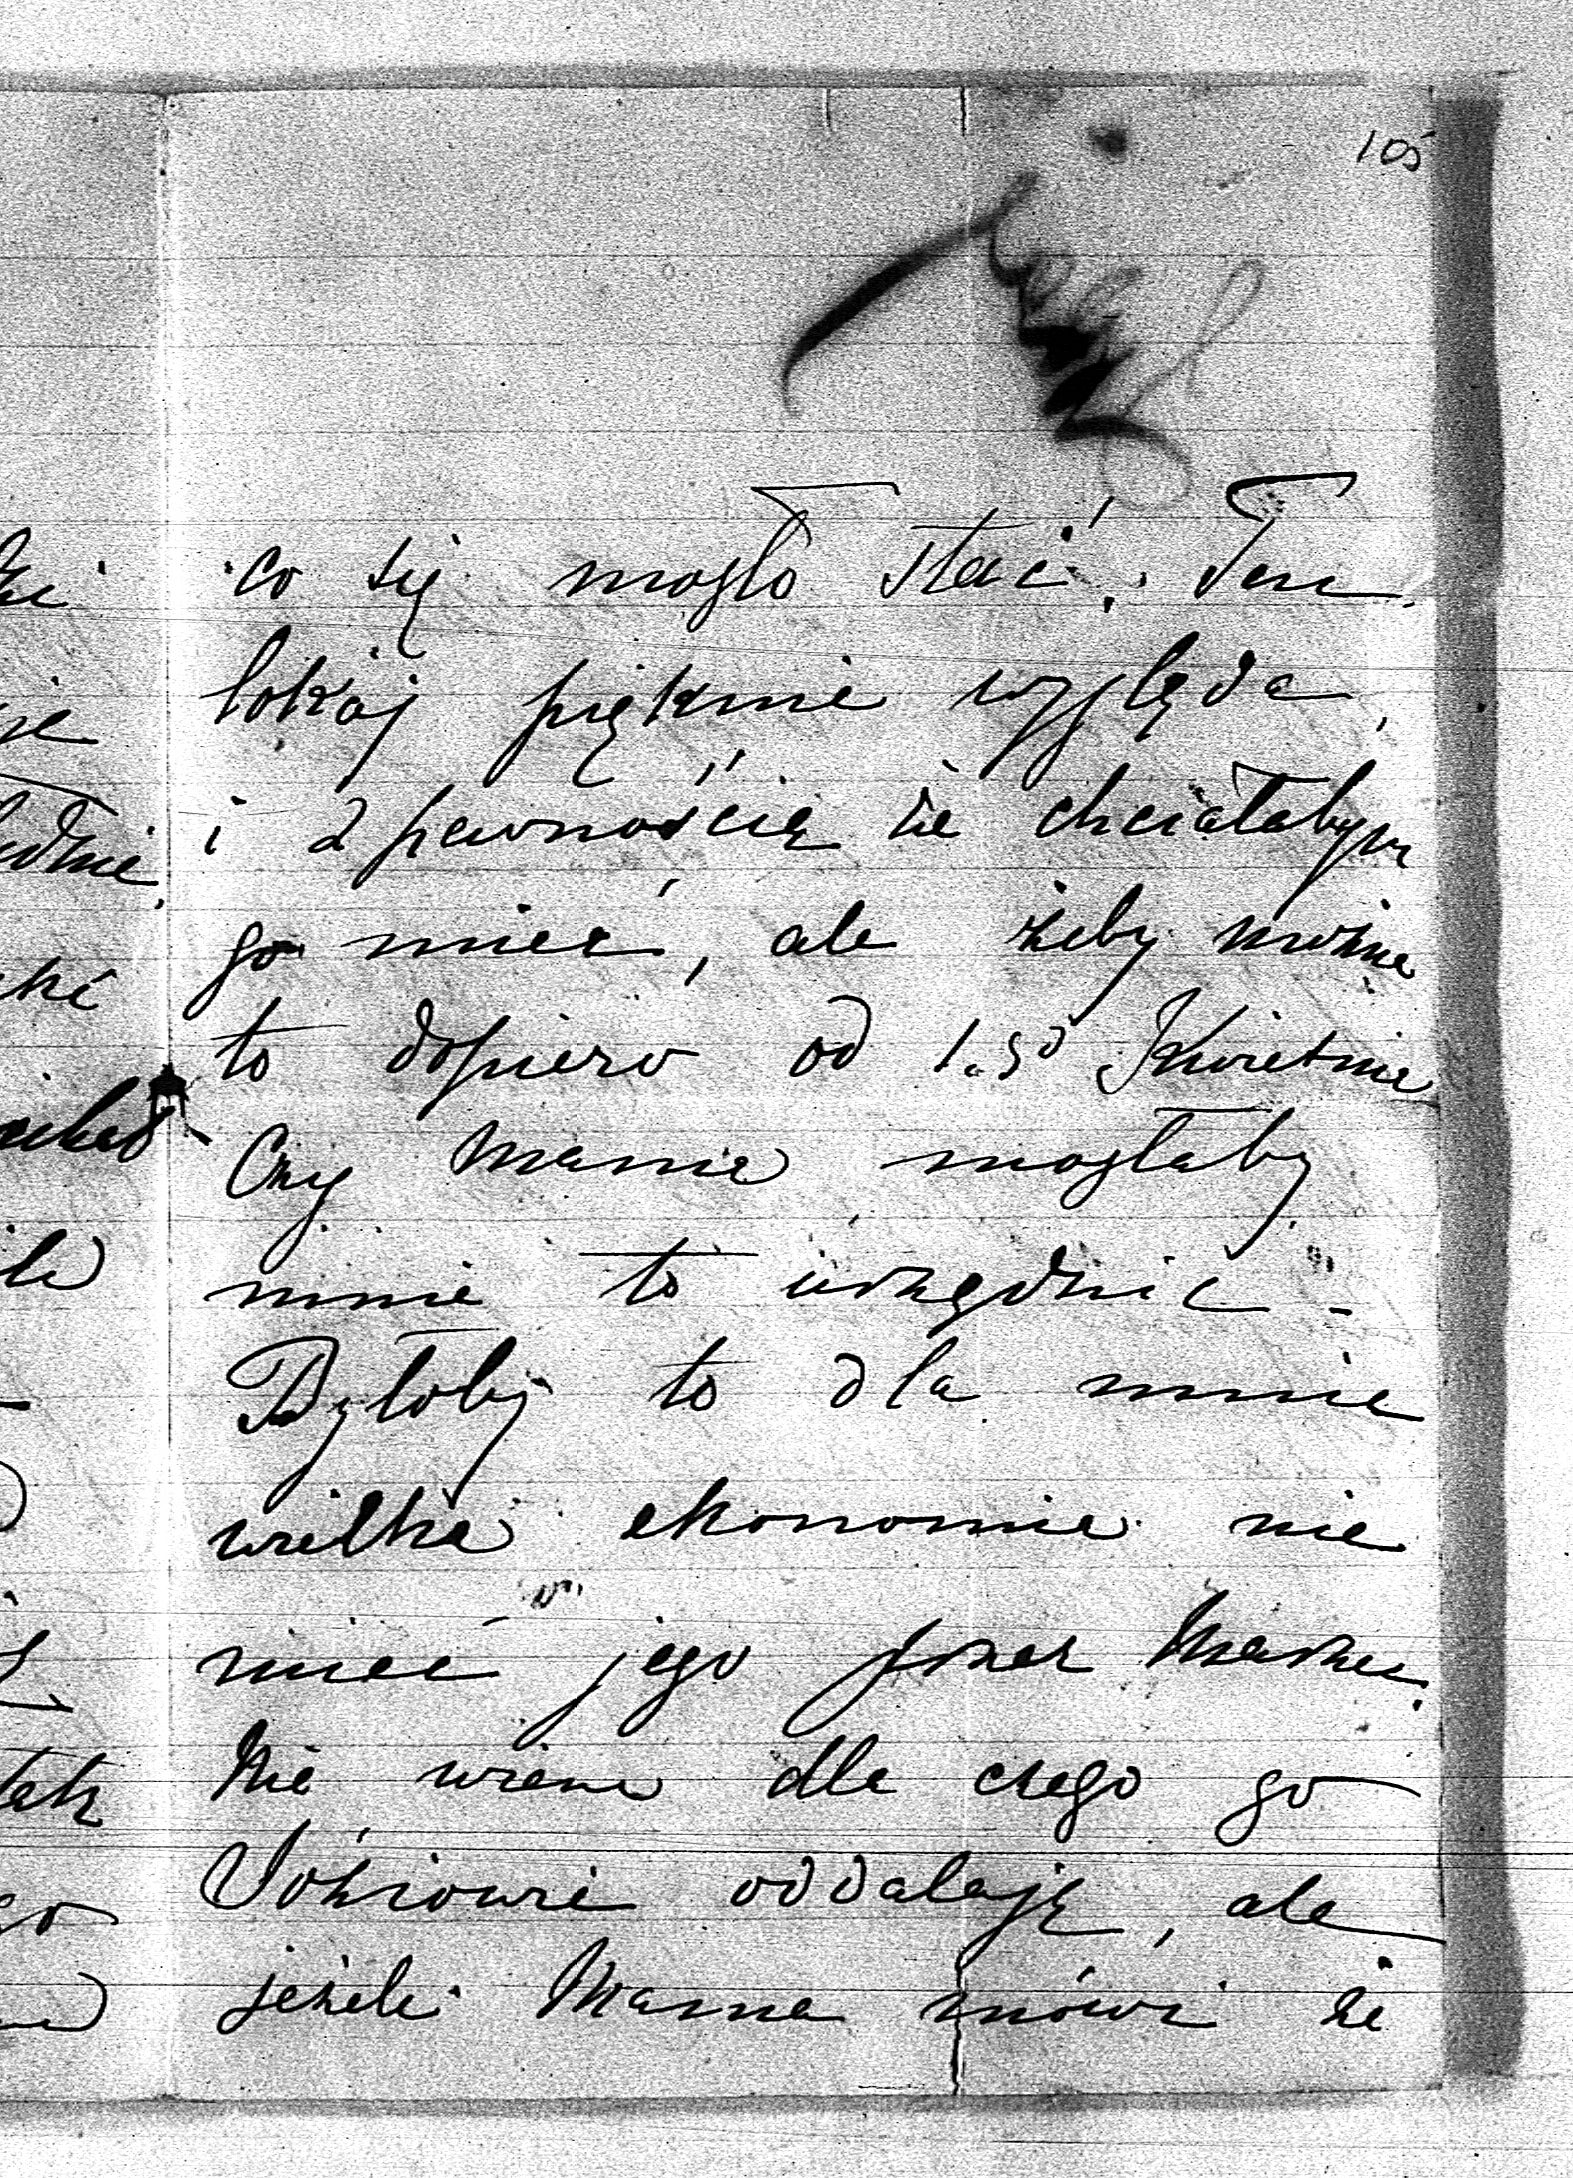 105
co się mogło stać. Ten
lokaj pięknie wygląda,
i z pewnością że chciałabym
go mieć, ale żeby można
to dopiero od 1.go Kwietnia
Czy Mama mogłaby
mnie to urządzić -
Byłoby to dla mnie
wielka ekonomia nie
mieć jego przez Marzec.
Nie wiem dla czego go
oddalają, ale
jeżeli Mama mówi że